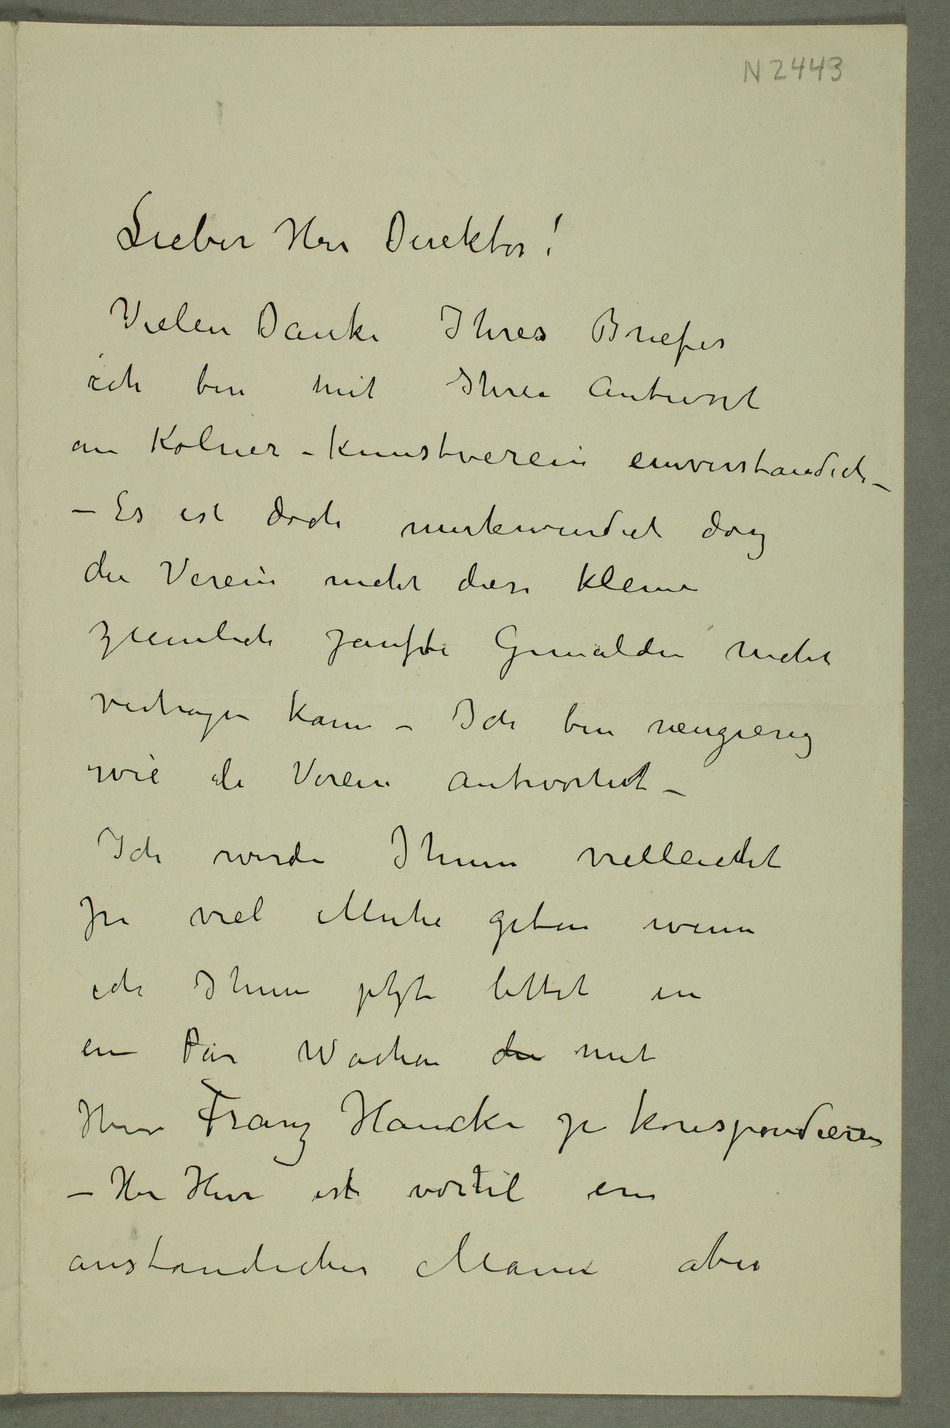 N 2443
Lieber Herr Direktor!
Vielen Danke Ihres Briefes
ich bin mit Ihrer Antwort
an Kölner-Kunstverein einverstandich –
– Es ist doch merkwürdich dasz
der Verein nicht diese kleine
ziemlich zanfte Gemälden nicht
vertragen kann – Ich bin neugierig
wie de Verein antwortet –
Ich werde Ihnen vielleicht
zu viel Muhe geben wenn
ich Ihnen jetzt bittet in
ein Par Wochen die mit
Herrn Franz Haucke zu korespondieren
– Herr ist ein
anstandicher Mann aber